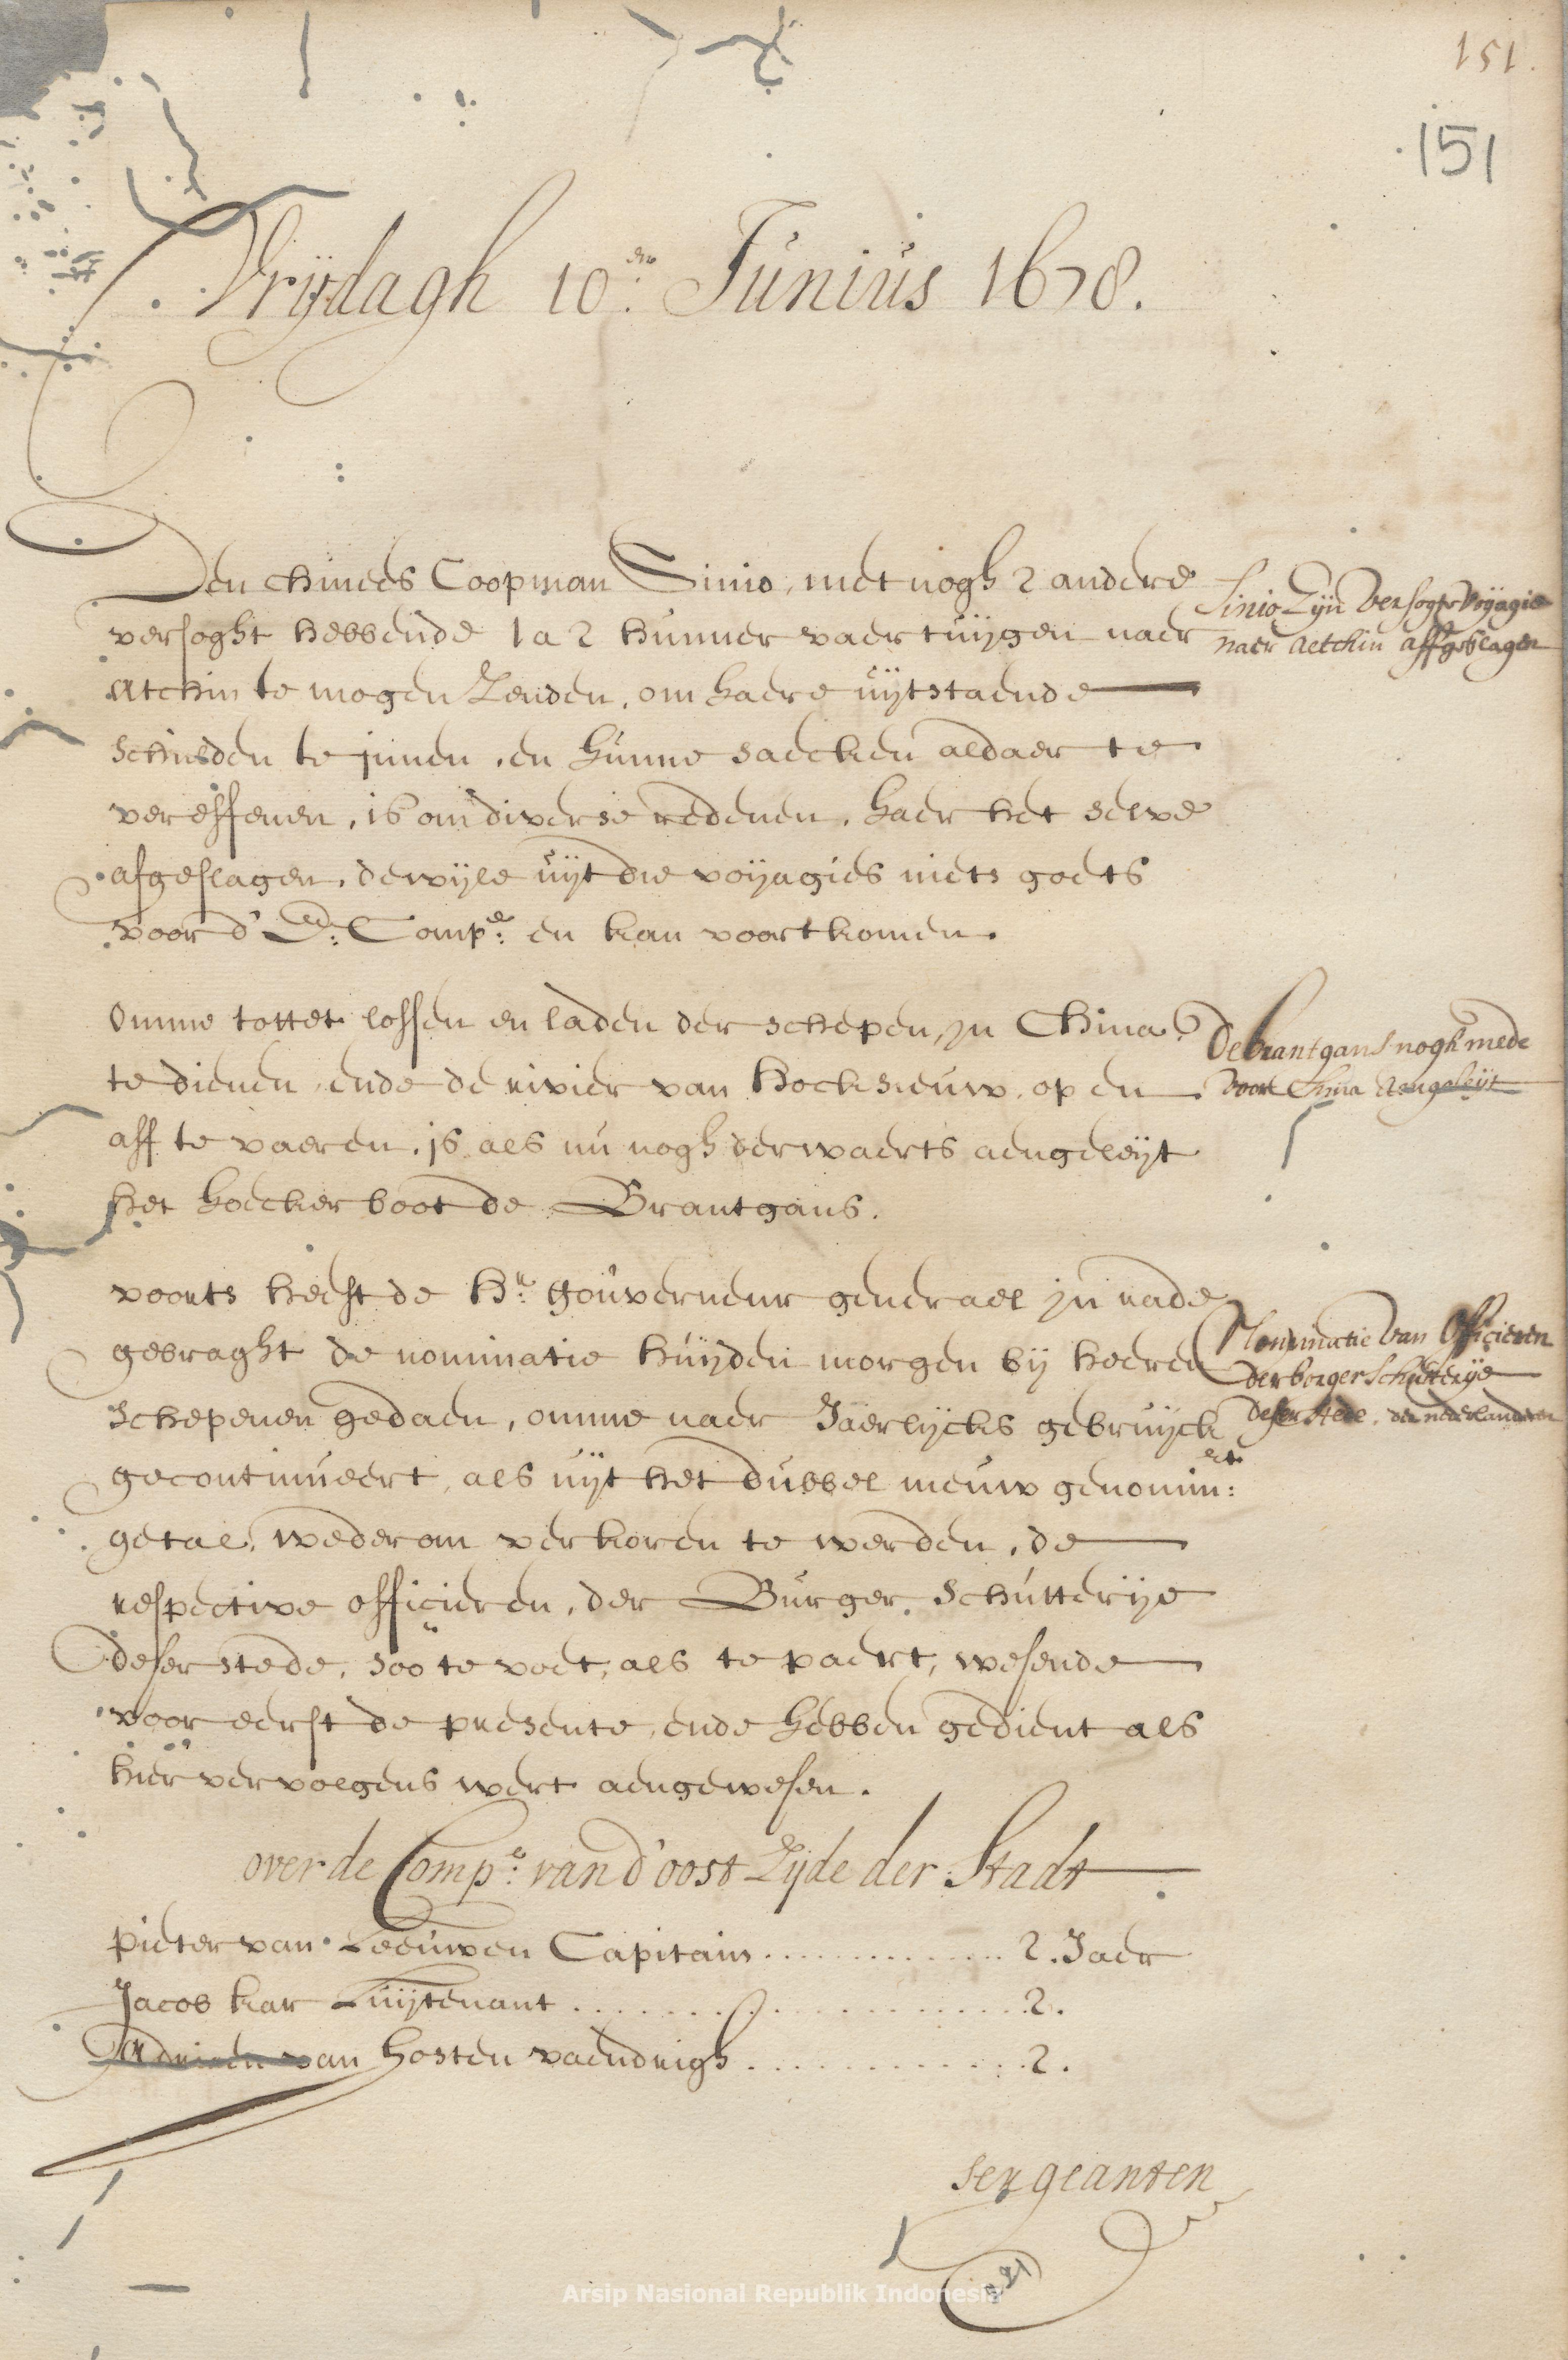 151.
151
Vrijdagh 10.en Junius 1678.
Den Chinees Coopman Sinio, met nogh 2 andere
versoght hebbende 1 a 2 hunner vaertuijgen naer
Atchin te mogen zenden, om haere uijtstaende
schulden te innen, en hunne saecken aldaer te
vereffenen, is om diverse redenen, haer het selve
afgeslagen, dewijle uijt die voijagies niets goets
voor d' Ed: Compe: en kan voortkomen.
Sinio zijn versogte voijagie
naer Aetchin affgeslagen
Omme tottet lossen en laden der schepen, in China
te dienen, ende de rivier van Hocksieuw, op en
aff te vaeren, is als nu nogh derwaerts aengeleijt
het hoeckerboot de Brantgans.
De brantgans nogh mede
voor China aengeleijt
voorts heeft de Hr. gouverneur generael in rade
gebraght de nominatie huijden morgen bij heeren
Schepenen gedaen, omme naer Jaerlijcks gebruijck
gecontinueert, als uijt het dubbel nieuw genomineert:
getal, wederom verkoren te werden, de
respective officieren, der Burger, Schutterije
deser stede, soo te voet, als te paert, wesende
voor eerst de presente, ende hebben gedient als
hier vervolgens wert aengewesen.
Nominatie van Officieren
der borger Schutterije
deser stede, der nederlanderen
over de Compe: van d'oost Zijde der Stadt
Pieter van Leeuwen Capitain ............. 2. Jaer
Jacob kar Luijtenant .................... 2.
Adriaen van hosten vaendrigh ............. 2.
sergeanten
Arsip Nasional Republik Indonesia